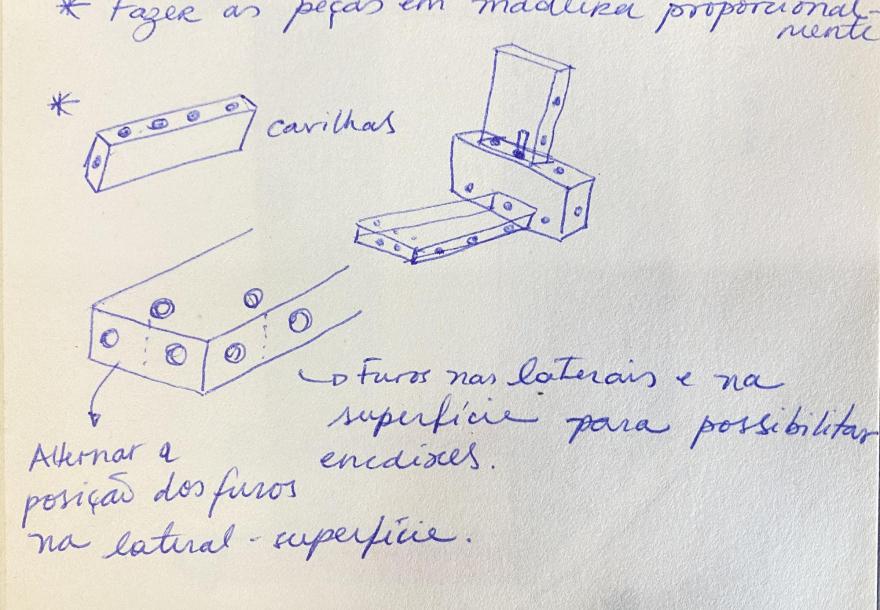 * Fazer as peças em madeira proporcional-
mente
*
cavilhas
Furos nas laterais e na
superfície para possibilitar
encaixes.
Alternar a
posição dos furos
na lateral-superfície.